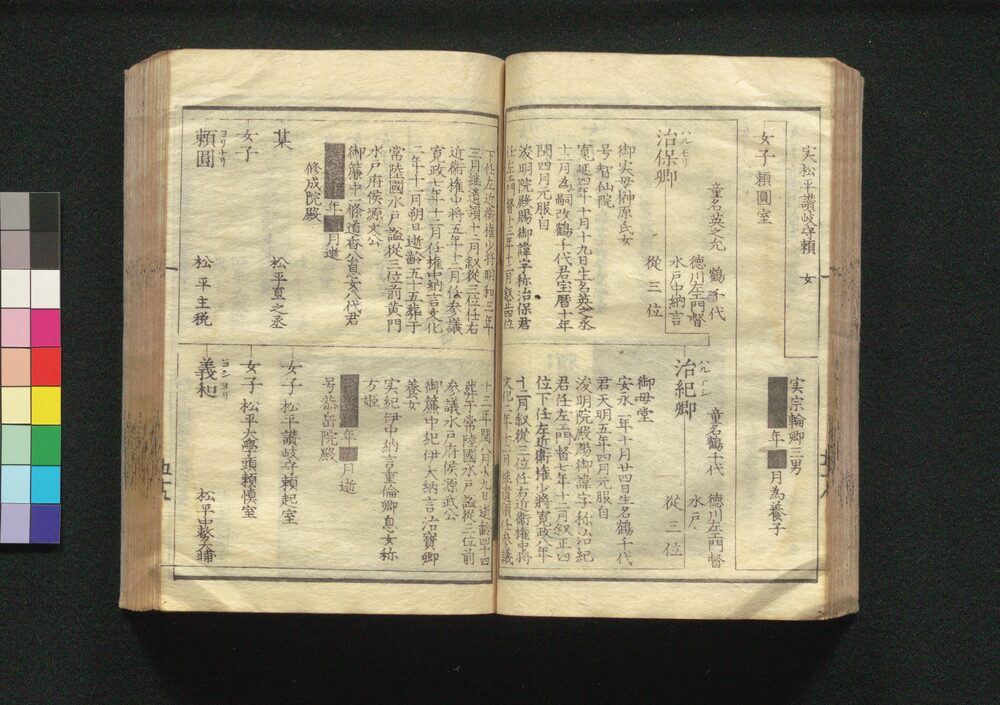 実松平讃岐守頼 女
女子 頼圓室
童名英之允 鶴千代
徳川左エ門督
水戸中納言
従三位
ハルモリ
治保卿
御実母榊原氏女
号智仙院
寛延四年十月十九日生名英之丞
十二月為嗣改鶴千代君宝暦十年
閏四月元服自
浚明院殿賜御諱字称治保君
任左エ門督十三年十二月叙正四位
下任左近衛権少将明和三年
三月継遺領十二月叙従三位任右
近衛権中将五年十二月任参議
寛政七年十二月任権中納言文化
二年十一月朔日逝齢五十五葬于
常陸國水戸謚従三位前黄門
水戸府侯源文公
御簾中一條道香公息女八代君
年 月逝
修成院殿
某 松平直之丞
女子
ヨリナリ
頼圓 松平主税
実宗輪卿三男
年 月為養子
童名鶴千代
徳川左エ門督
水戸
従三位
ハルトシ
治紀卿
御母堂
安永二年十月廿四日生名鶴千代
君天明五年四月元服自
浚明院殿賜御諱字称治紀
君任左エ門督七年十二月叙正四
位下任左近衛権少将寛政八年
十二月叙従三位任右近衛権中将
文化二年十二月継遺領任参議
十三年閏八月十九日逝齢四十四
葬于常陸國水戸謚従三位前
参議水戸府侯源武公
御簾中紀伊大納言治寶卿
養女
実紀伊中納言重倫卿息女称
方姫
年 月逝
号恭岳院殿
女子 松平讃岐守頼起室
女子 松平大學頭頼慎室
ヨシヨリ
義和 松平中務大輔